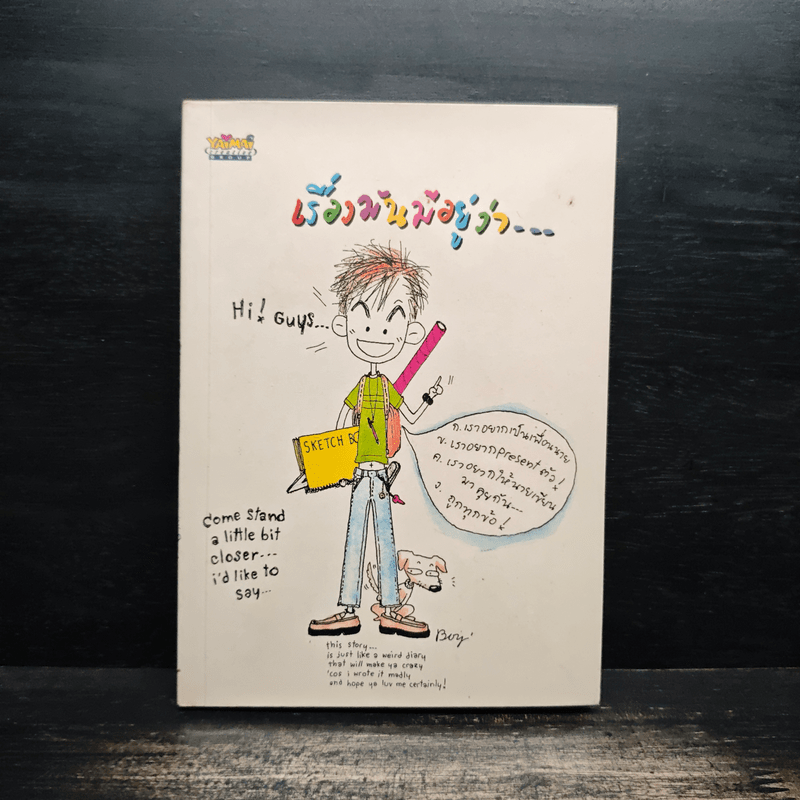 YAiMAi
CREATIVE
GROUP
เรื่องมันมีอยู่ว่า---
Hi! Guys...
SKETCH BO
ก. เราอยากเป็นเพื่อนนาย
ข. เราอยาก present ตัว!
ค. เราอยากให้นายเขียน
มาคุยกัน...
ง. ถูกทุกข้อ!
come stand
a little bit
closer...
i'd like to
say...
Boy'
this story...
is just like a weird diary
that will make ya crazy
'cos i wrote it madly
and hope ya luv me certainly!